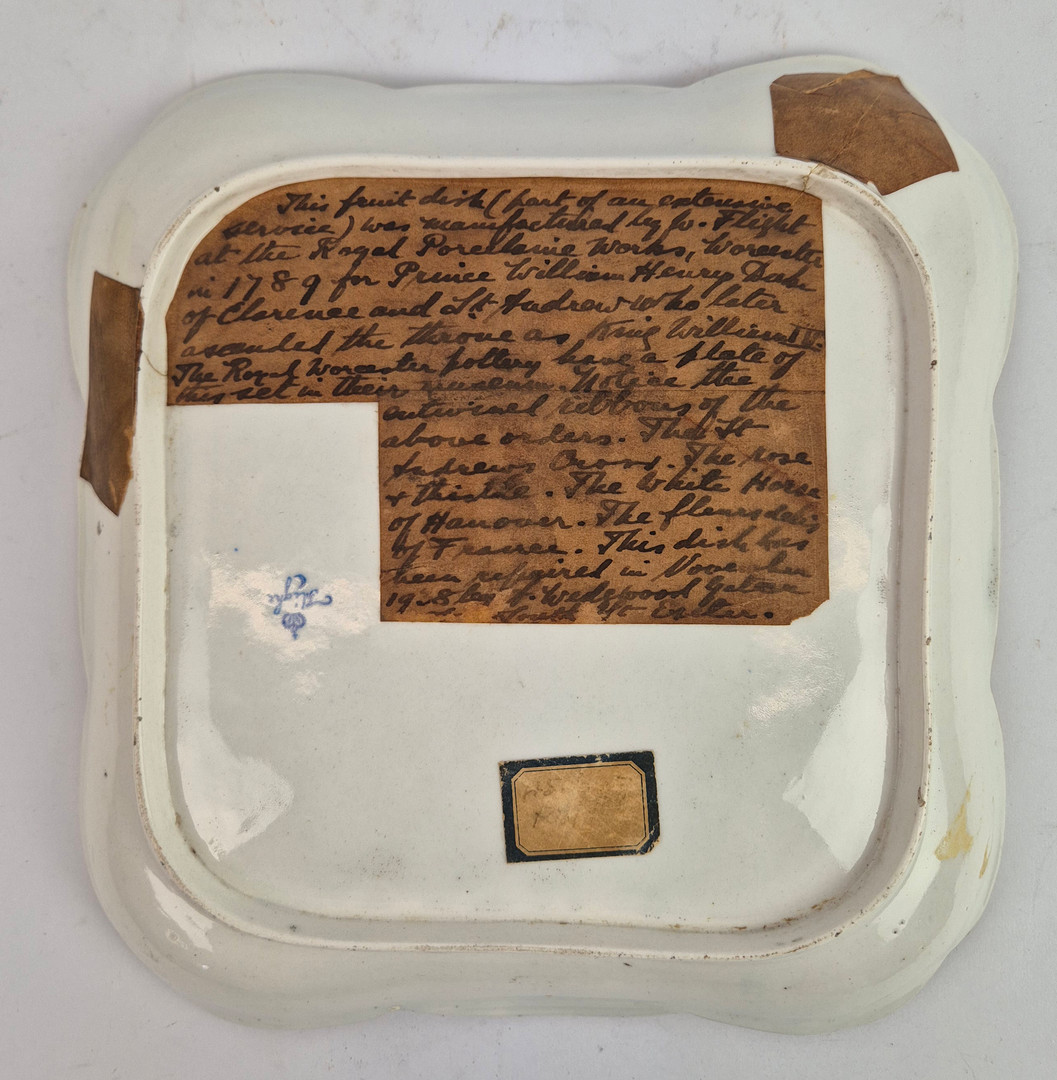 This fruit dish (part of an extensive
service) was manufactured by J. Flight
at the Royal Porcelaine Works, Worcester
in 1789 for Prince William Henry Duke
of Clarence and St Andrew who later
ascended the throne as King William IV.
The Royal Worcester pottery have a plate of
this set in their museum. Notice the
entwined ribbons of the
above orders. The St
Andrews Cross. The rose
& thistle. The White Horse
of Hanover. The fleurs de lis
of France. This dish has
been repaired in November
by Wedgwood
South St Exeter.
Flight